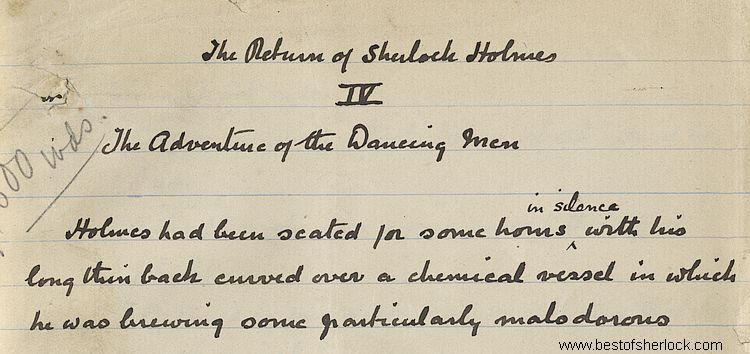 The Return of Sherlock Holmes
IV
The Adventure of the Dancing Men
00 wds.
in silence
Holmes had been seated for some hours ‸ with his
long thin back curved over a chemical vessel in which
he was brewing some particularly malodorous
www.bestofsherlock.com